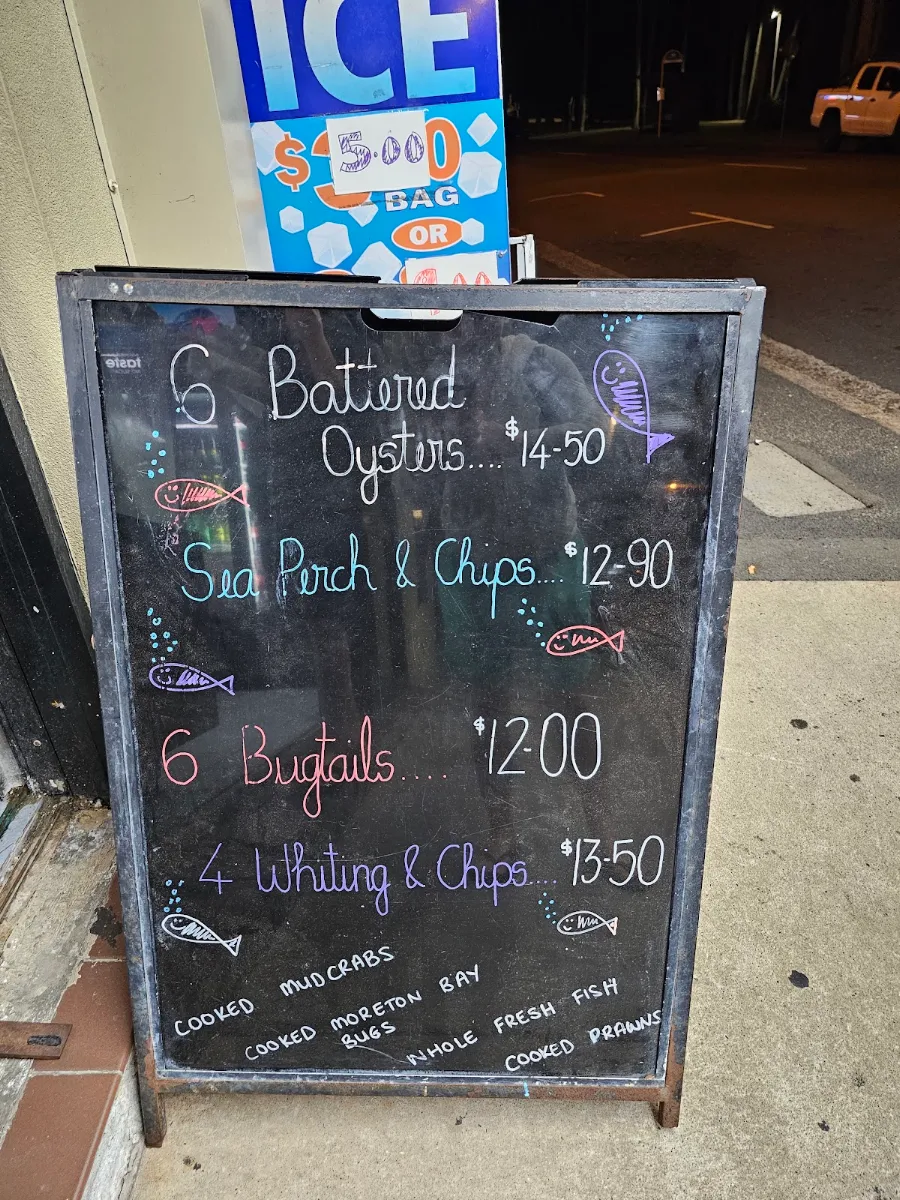 ICE
$ 5.00 0
BAG
OR
taste
6 Battered
Oysters.... $14-50
Sea Perch & Chips.... $12-90
6 Bugtails.... $12-00
4 Whiting & Chips.... $13-50
COOKED MUDCRABS
COOKED MORETON BAY
BUGS
WHOLE FRESH FISH
COOKED PRAWNS